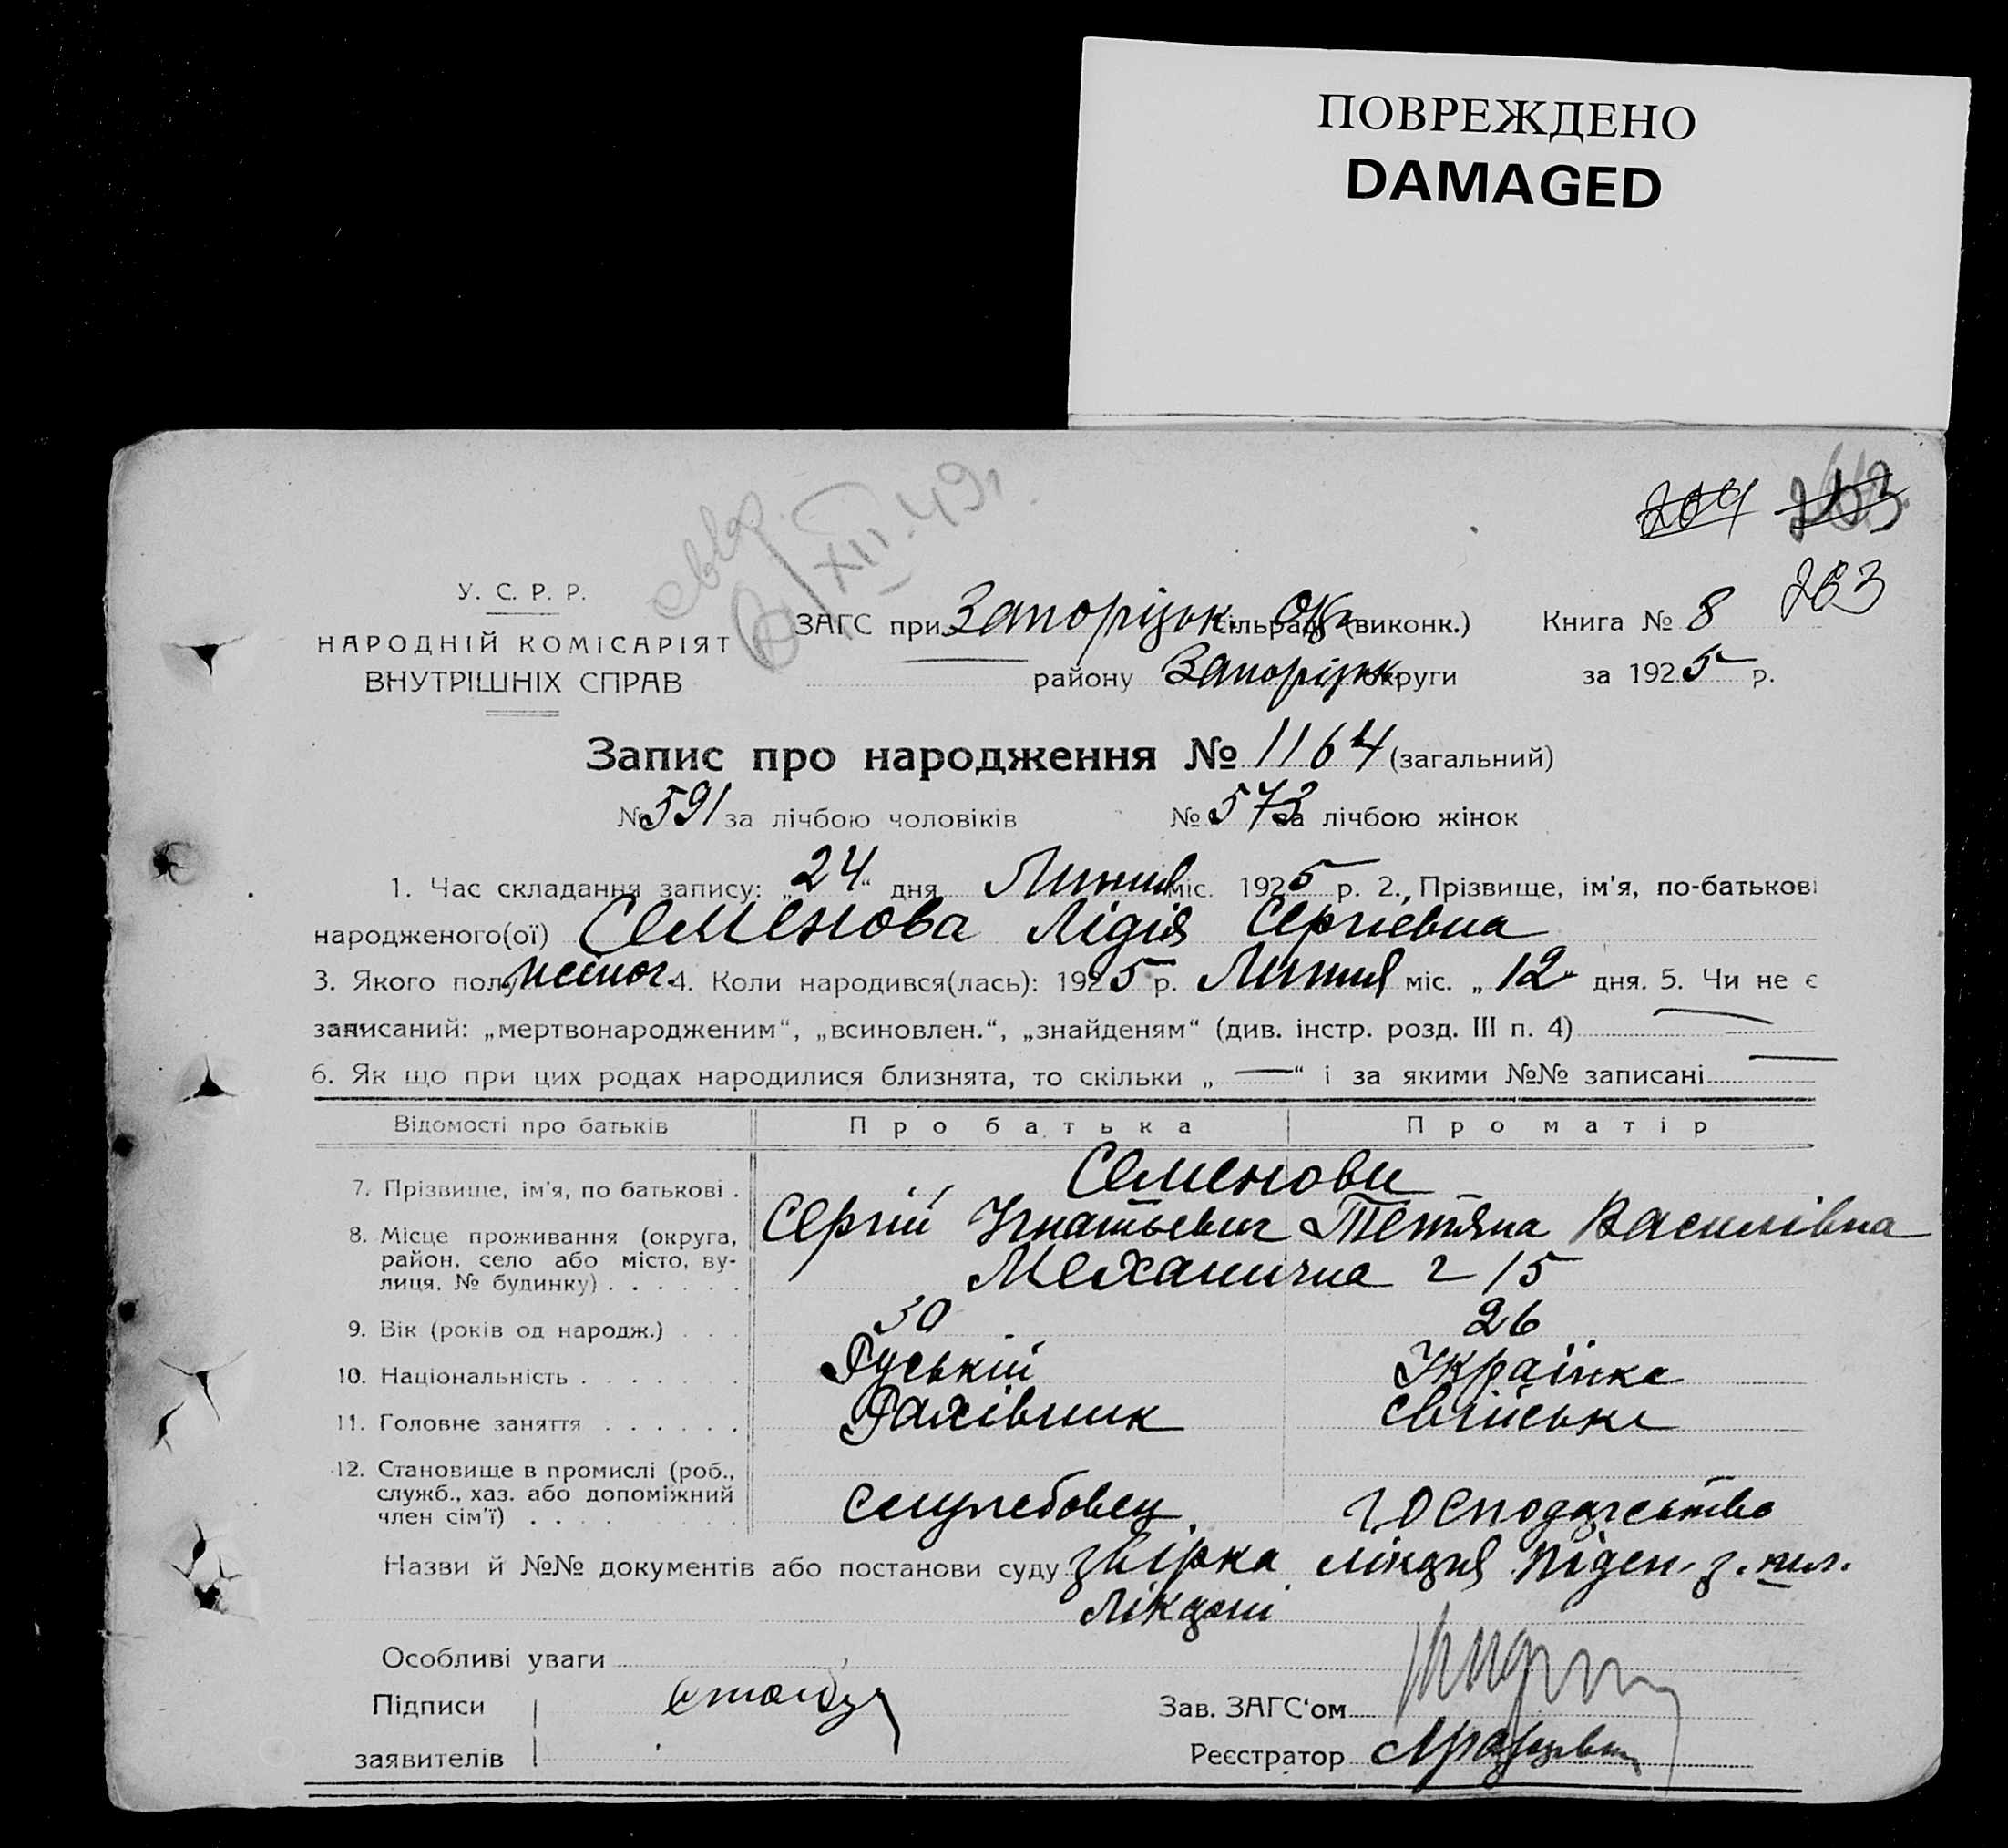 ПОВРЕЖДЕНО
DAMAGED
204 263
263
XII.49г.
У. С. Р. Р.
НАРОДНІЙ КОМІСАРІЯТ
ВНУТРІШНІХ СПРАВ
ЗАГС при Запоріzьк. Окр сільради (виконк.)
району Запорізьк округи
Книга № 8
за 1925 р.
Запис про народження № 1164 (загальний)
№ 591 за лічбою чоловіків № 573 за лічбою жінок
1. Час складання запису: „24“ дня Липня міс. 1925 р. 2. Прізвище, ім'я, по-батькові
народженого(ої) Семенова Лідія Сергіевна
3. Якого полу жіноч. 4. Коли народився(лась): 1925 р. Липня міс. „12“ дня. 5. Чи не є
записаний: „мертвонародженим“, „всиновлен.“, „знайденям“ (див. інстр. розд. III п. 4) —
6. Як що при цих родах народилися близнята, то скільки „—“ і за якими №№ записані —
Відомості про батьків Про батька Про матір
7. Прізвище, ім'я, по батькові . Семенови
Сергій Игнатьевич Тетяна Василівна
8. Місце проживання (округа,
район, село або місто, ву-
лиця, № будинку) . . . . . . Механична 2 15
9. Вік (років од народж.) . . . 30 26
10. Національність . . . . . . . Руський Українка
11. Головне заняття . . . . . . Рахівник свійське
12. Становище в промислі (роб.,
служб., хаз. або допоміжний
член сім'ї) . . . . служебовец господарство
Назви й №№ документів або постанови суду
Особливі уваги
Підписи
заявителів
Зав. ЗАГС'ом
Реєстратор